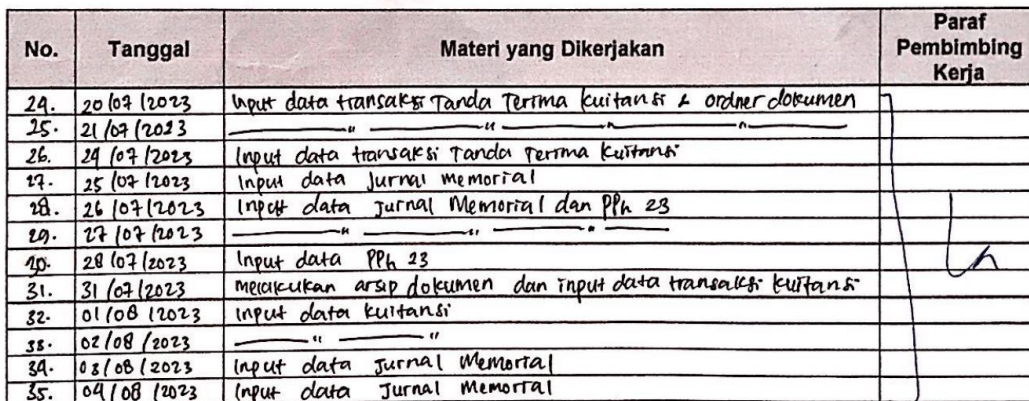 No. Tanggal Materi yang Dikerjakan Paraf Pembimbing Kerja
24. 20/07/2023 Input data transaksi Tanda Terima kuitansi & ordner dokumen
25. 21/07/2023 —— " —— " —— " —— " ——
26. 24/07/2023 Input data transaksi Tanda Terima Kuitansi
27. 25/07/2023 Input data Jurnal memorial
28. 26/07/2023 Input data Jurnal Memorial dan PPh 23
29. 27/07/2023 —— " —— " —— " ——
30. 28/07/2023 Input data PPh 23
31. 31/07/2023 Melakukan arsip dokumen dan input data transaksi kuitansi
32. 01/08/2023 Input data kuitansi
33. 02/08/2023 —— " —— "
34. 03/08/2023 Input data Jurnal Memorial
35. 04/08/2023 Input data Jurnal Memorial